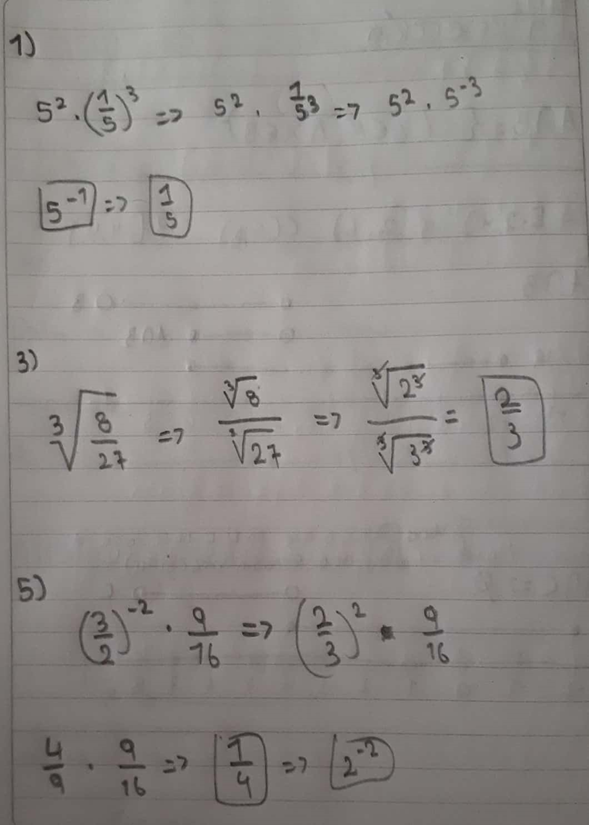 1)
5² · (1/5)³ => 5² · 1/5³ => 5² · 5⁻³
5⁻¹ => 1/5
3)
³√(8/27) => ³√8/³√27 => ³√2³/³√3³ = 2/3
5)
(3/2)⁻² · 9/16 => (2/3)² · 9/16
4/9 · 9/16 => 1/4 => 2⁻²